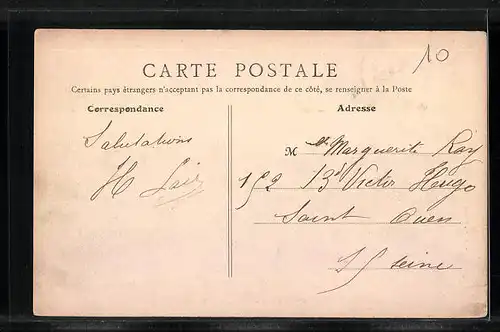 10
CARTE POSTALE
Certains pays étrangers n'acceptant pas la correspondance de ce côté, se renseigner à la Poste
Correspondance
Adresse
Salutations
H Lair
Mlle Marguerite Ray
152 Bd Victor Hugo
Saint Ouen
S/ Seine